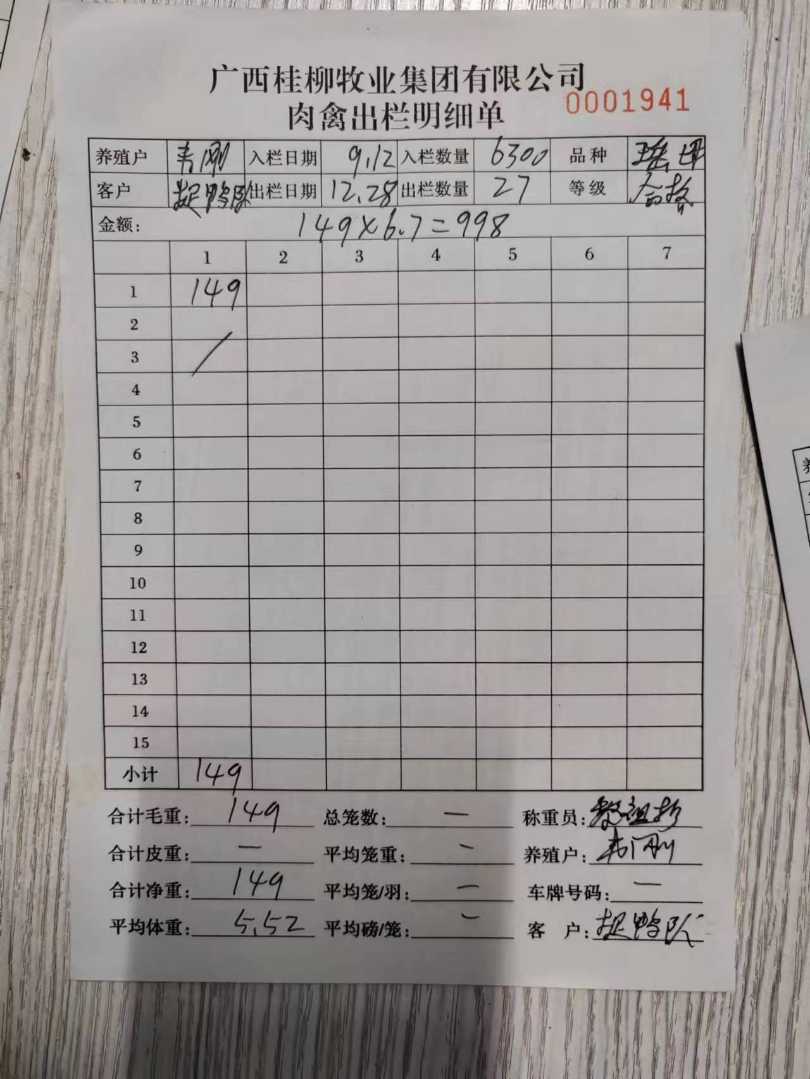 广西桂柳牧业集团有限公司
肉禽出栏明细单 0001941
养殖户 韦刚 入栏日期 9.12 入栏数量 6300 品种
客户 捉鸭队 出栏日期 12.28 出栏数量 27 等级 合格
金额: 149×6.7=998
1 2 3 4 5 6 7
1 149
2
3 /
4
5
6
7
8
9
10
11
12
13
14
15
小计 149
合计毛重: 149 总笼数: — 称重员:
合计皮重: — 平均笼重: - 养殖户: 韦刚
合计净重: 149 平均笼/羽: — 车牌号码: —
平均体重: 5.52 平均磅/笼: — 客户: 捉鸭队